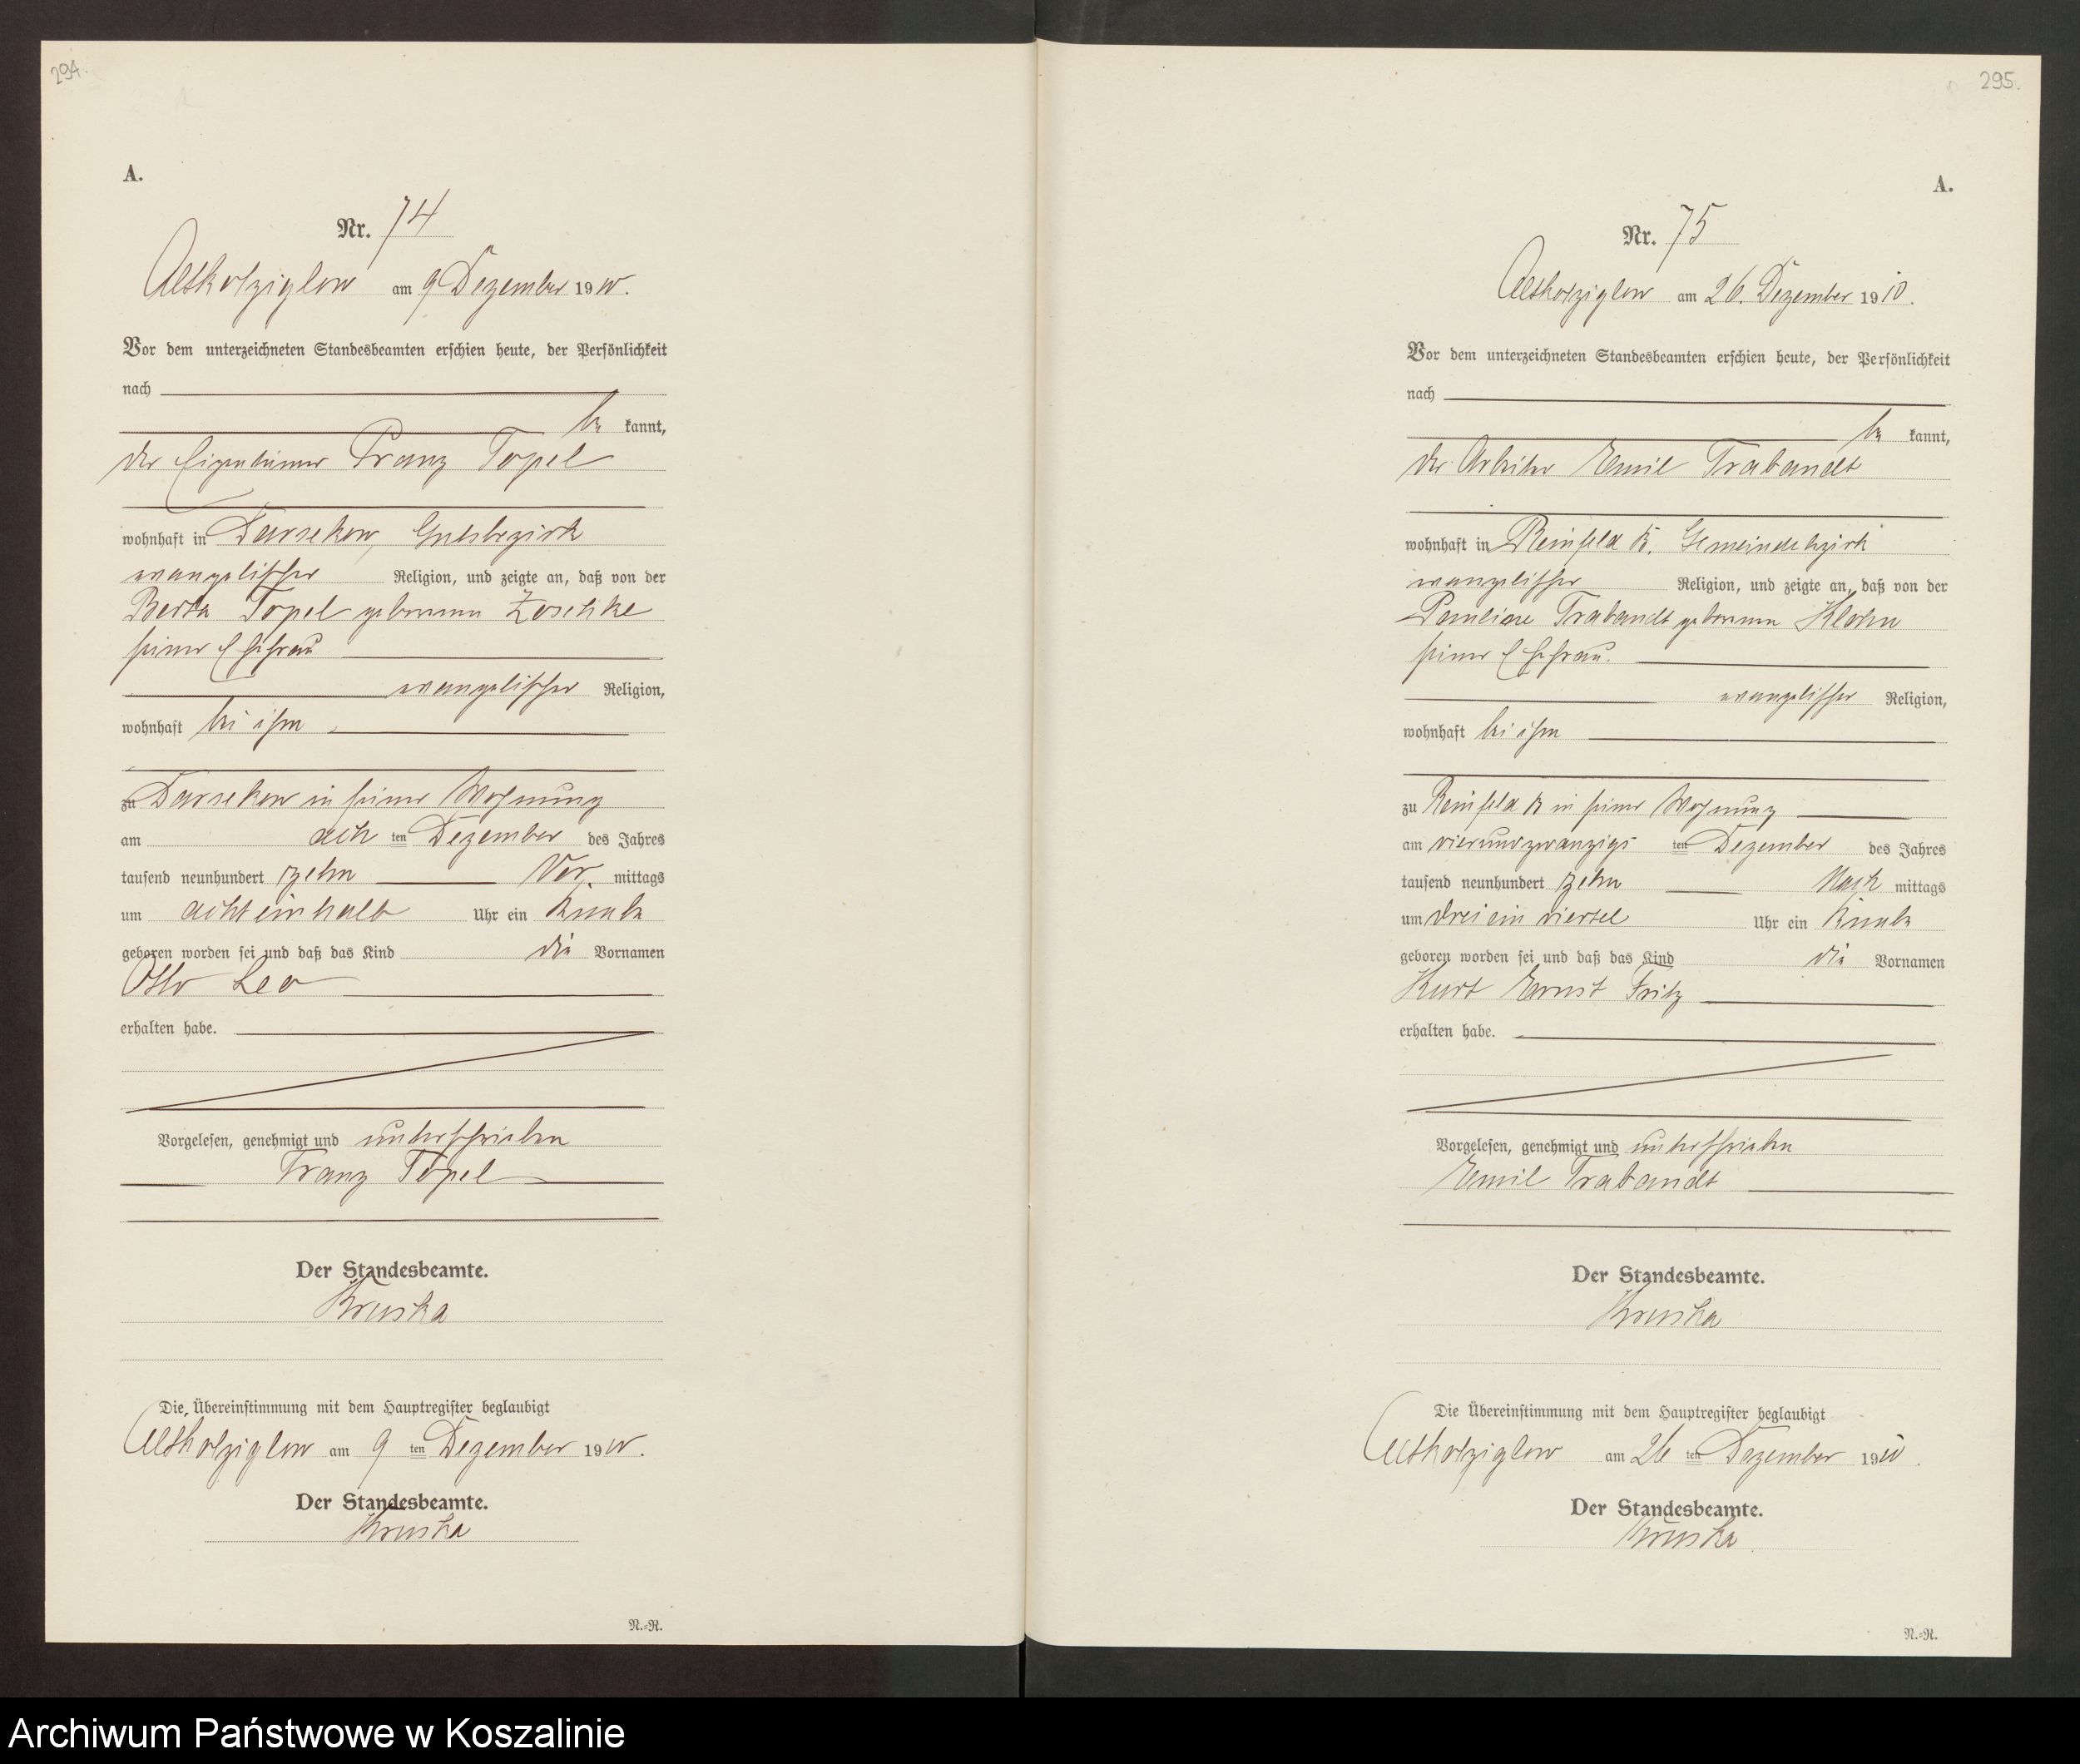 294.
A.
Nr. 74
Altkolziglow am 9 Dezember 1910.
Vor dem unterzeichneten Standesbeamten erschien heute, der Persönlichkeit
nach
be kannt,
der Eigentümer Franz Topel
wohnhaft in Darsekow, Gutsbezirk
evangelischer Religion, und zeigte an, daß von der
Berta Topel geborenen Zoschke
seiner Ehefrau
evangelischer Religion,
wohnhaft bei ihm
zu Darsekow in seiner Wohnung
am ach ten Dezember des Jahres
tausend neunhundert zehn Vor mittags
um achteinhalb Uhr ein Knabe
geboren worden sei und daß das Kind die Vornamen
Otto Leo
erhalten habe.
Vorgelesen, genehmigt und unterschrieben
Franz Topel
Der Standesbeamte.
Kruska
Die Übereinstimmung mit dem Hauptregister beglaubigt
Altkolziglow am 9 ten Dezember 1910.
Der Standesbeamte.
Kruska
N.=R.
295.
A.
Nr. 75
Altkolziglow am 26. Dezember 1910.
Vor dem unterzeichneten Standesbeamten erschien heute, der Persönlichkeit
nach
be kannt,
der Arbeiter Emil Trabandt
wohnhaft in Reinfeld B. Gemeindebezirk
evangelischer Religion, und zeigte an, daß von der
Pauline Trabandt geborenen
seiner Ehefrau.
evangelischer Religion,
wohnhaft bei ihm
zu Reinfeld B in seiner Wohnung
am vierundzwanzigs ten Dezember des Jahres
tausend neunhundert zehn Nach mittags
um drei ein viertel Uhr ein Knabe
geboren worden sei und daß das Kind die Vornamen
Kurt Ernst Fritz
erhalten habe.
Vorgelesen, genehmigt und unterschrieben
Emil Trabandt
Der Standesbeamte.
Kruska
Die Übereinstimmung mit dem Hauptregister beglaubigt
Altkolziglow am 26 ten Dezember 1910.
Der Standesbeamte.
Kruska
N.=R.
Archiwum Państwowe w Koszalinie